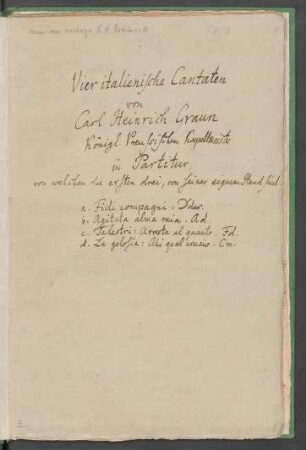 Vier italienische Cantaten
von
Carl Heinrich Graun
Königl. Preussischen Kapellmeister
in Partitur,
von welchen die ersten drei, von seiner eigenen Hand sind.
a. Fidi compagni. Ddur.
b. Agitata alma mia. Ad.
c. Talestri: Arresta al quanto. Fd.
d. La gelosia: Ahi qual crucio. Cm.